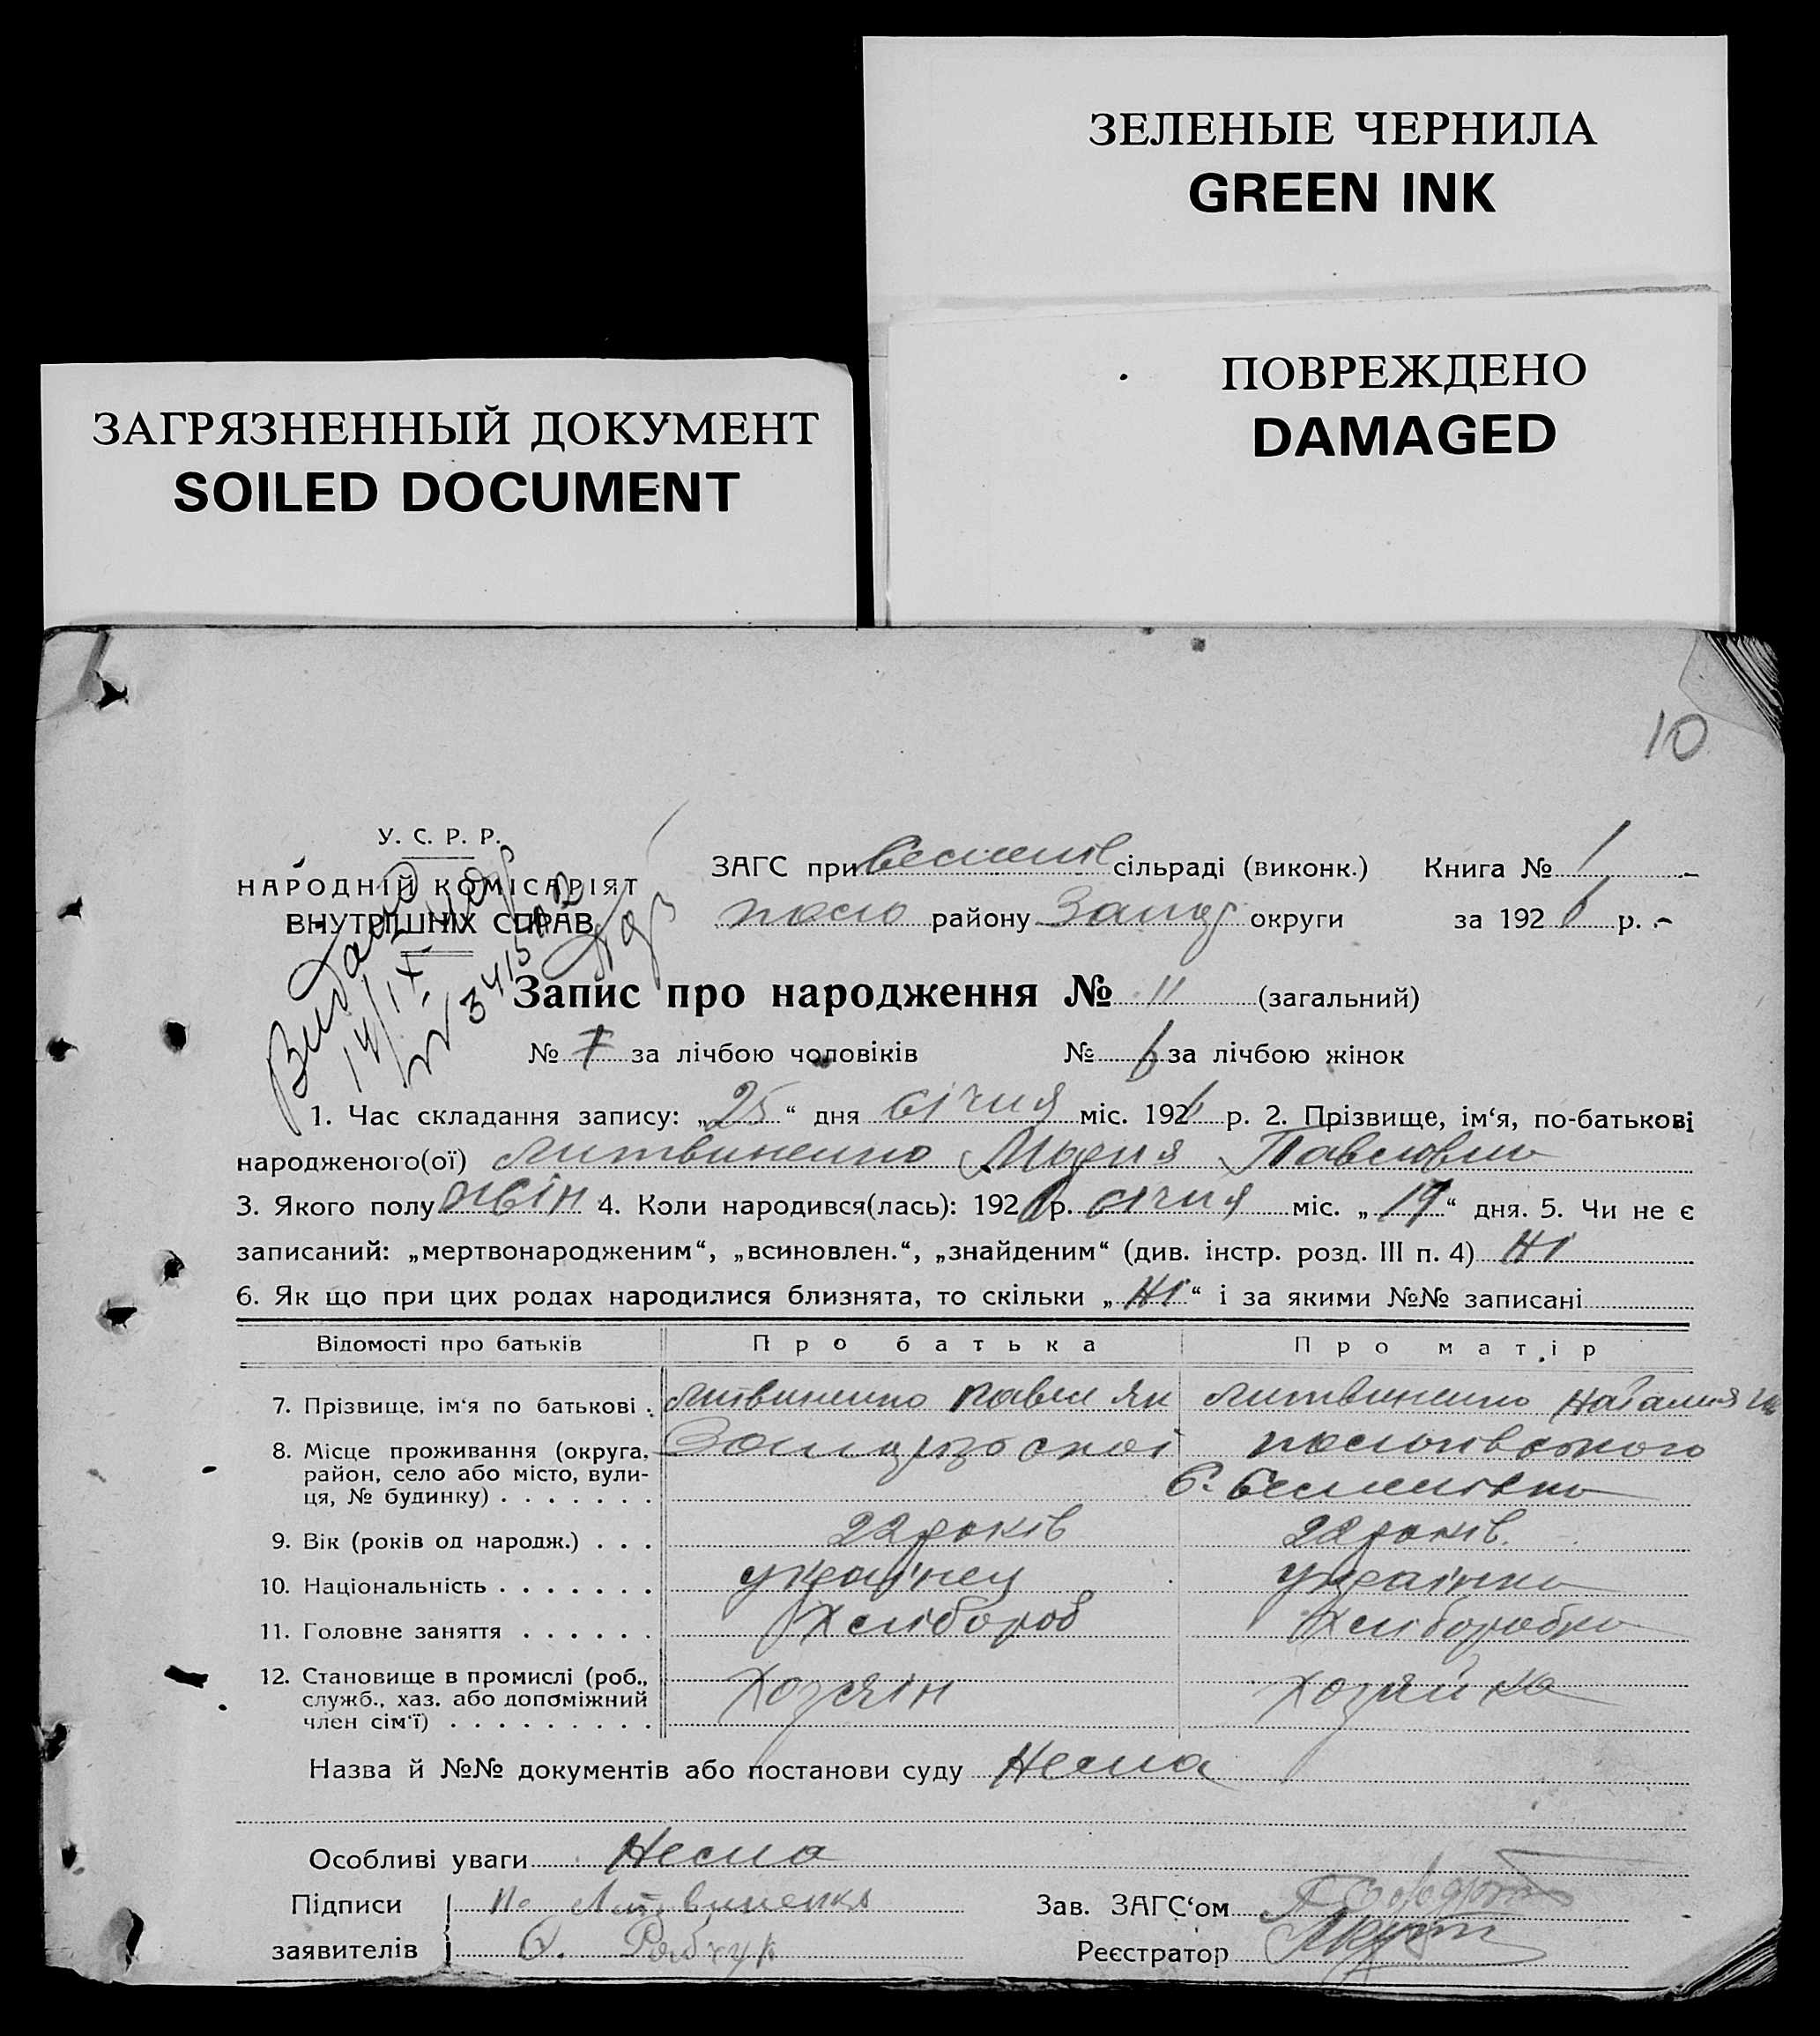 ЗЕЛЕНЫЕ ЧЕРНИЛА
GREEN INK
ПОВРЕЖДЕНО
DAMAGED
ЗАГРЯЗНЕННЫЙ ДОКУМЕНТ
SOILED DOCUMENT
10
У. С. Р. Р.
НАРОДНІЙ КОМІСАРІЯТ
ВНУТРІШНІХ СПРАВ
14/IX
ЗАГС при сільраді (виконк.) Книга № 1
району Запор округи за 1926 р.
Запис про народження № 11 (загальний)
№ 7 за лічбою чоловіків № 6 за лічбою жінок
1. Час складання запису: „25“ дня січня міс. 1926 р. 2. Прізвище, ім‘я, по-батькові
народженого(ої) Литвиненко Мария Павловна
3. Якого полу жін 4. Коли народився(лась): 1926 р. січня міс. „19“ дня. 5. Чи не є
записаний: „мертвонародженим“, „всиновлен.“, „знайденим“ (див. інстр. розд. III п. 4) Ні
6. Як що при цих родах народилися близнята, то скільки „Ні“ і за якими №№ записані
Відомості про батьків Про батька Про матір
7. Прізвище, ім‘я по батькові . Литвиненко Павел Як Литвиненко Наталия
8. Місце проживання (округа,
район, село або місто, вули-
ця, № будинку) . . . . . . . с.
9. Вік (років од народж.) . . . 22 років 22 років.
10. Національність . . . . . . . українец українка
11. Головне заняття . . . . . . Хлібороб Хлiборобка
12. Становище в промислі (роб.,
служб., хаз. або допоміжний
член сім‘ї) . . . . . . . . . Хозяін Хозяйка
Назва й №№ документів або постанови суду Нема
Особливі уваги Нема
Підписи Литвиненко Зав. ЗАГС‘ом
заявителів Реєстратор